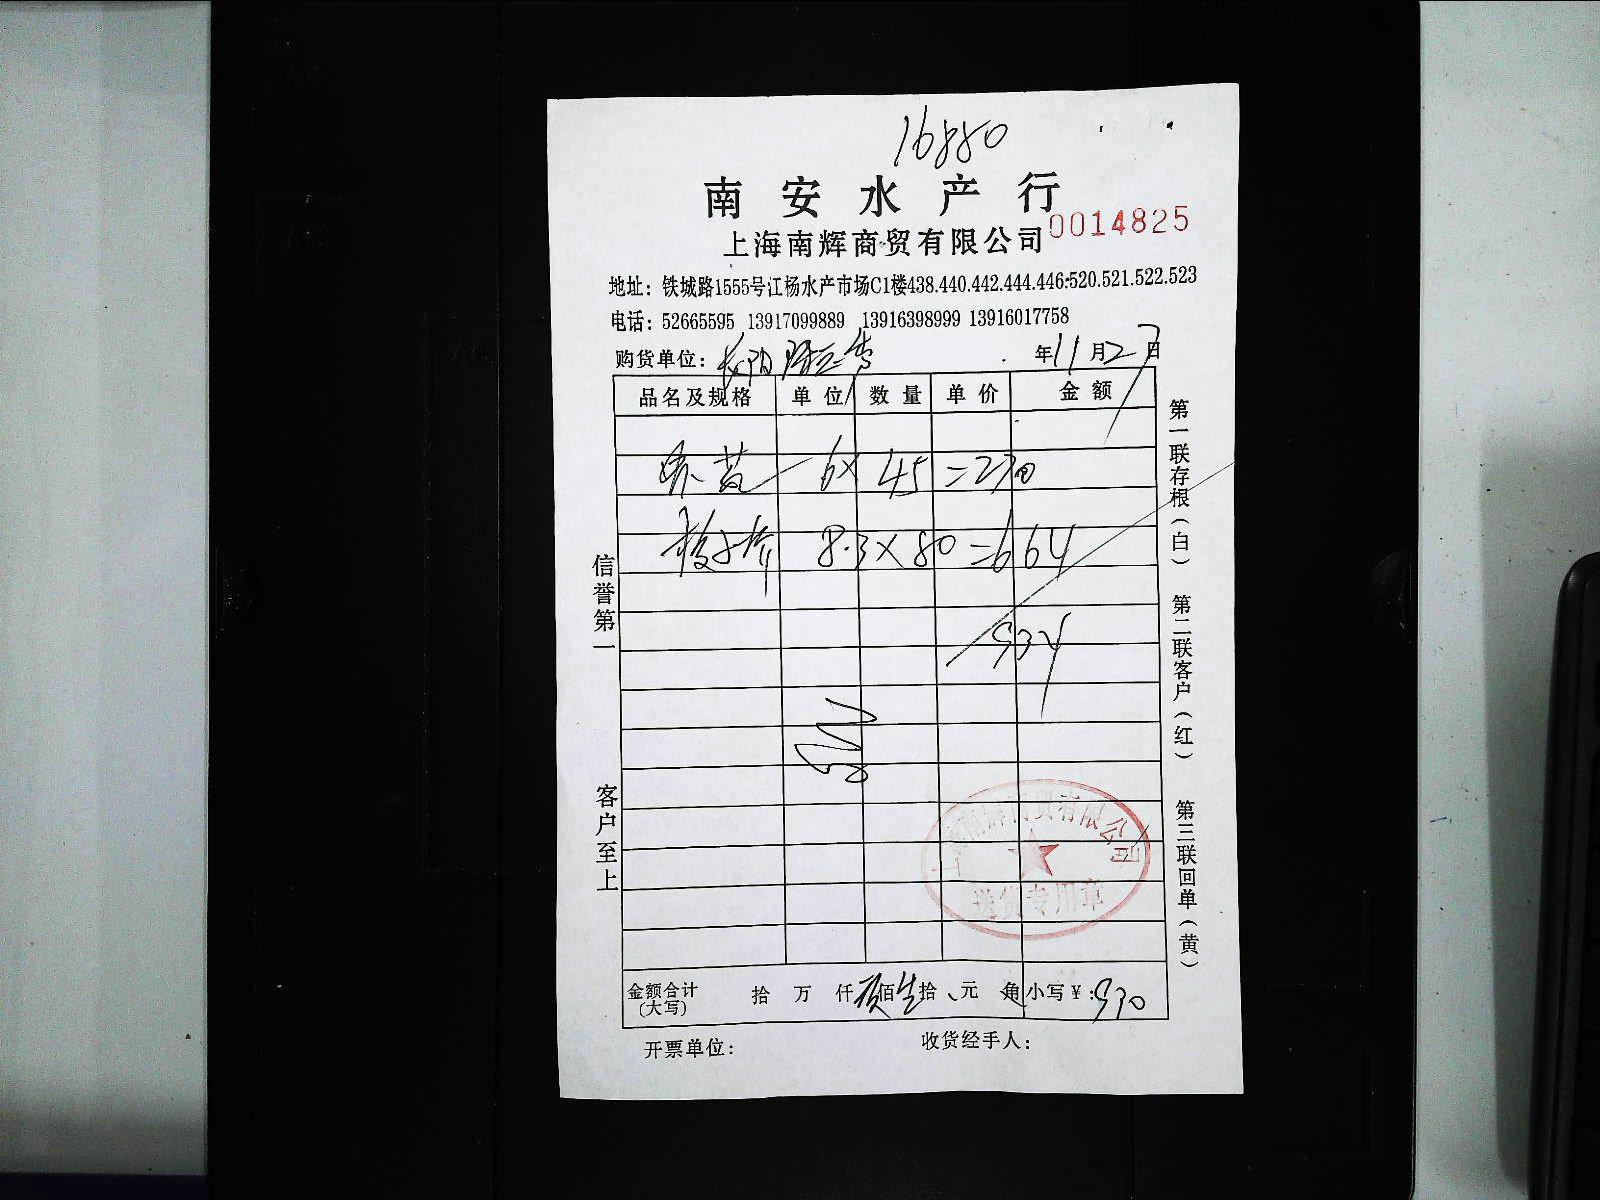 16880
南安水产行
上海南辉商贸有限公司 0014825
地址：铁城路1555号江杨水产市场C1楼438.440.442.444.446.520.521.522.523
电话：52665595 13917099889 13916398999 13916017758
购货单位： 年11月27日
品名及规格 单位 数量 单价 金额
6×45=270
8.3×80=664
934
上海南辉商贸有限公司
送货专用章
金额合计(大写) 拾 万 仟 佰 拾 元 角 小写¥：930
开票单位： 收货经手人：
信誉第一 客户至上
第一联存根（白） 第二联客户（红） 第三联回单（黄）